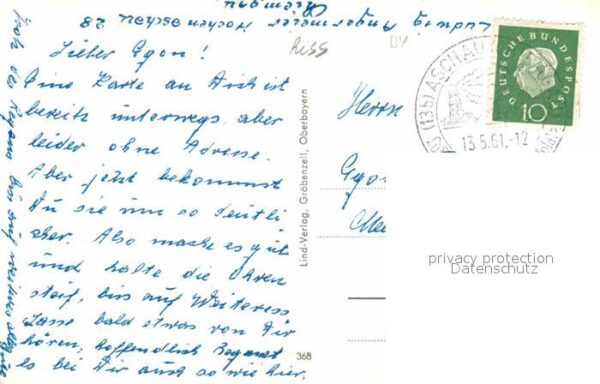 Lieber Egon!
Eine Karte an Dich ist
bereits unterwegs aber
leider ohne Adresse.
Aber jetzt bekommst
Du sie um so deutli
cher. Also mache es gut
und halte die Ohren
steif, bis auf Weiteres
Lasse bald etwas von Dir
hören, hoffentlich Regnet
es bei Dir auch so wie hier.
trotz des Regens
Ludwig Angermeier Hochenaschau 28
Riss
BY
Lind-Verlag, Gröbenzell, Oberbayern
368
Herrn
Egon
(13b) ASCHAU
13.5.61.-12
DEUTSCHE BUNDESPOST
10
privacy protection
Datenschutz